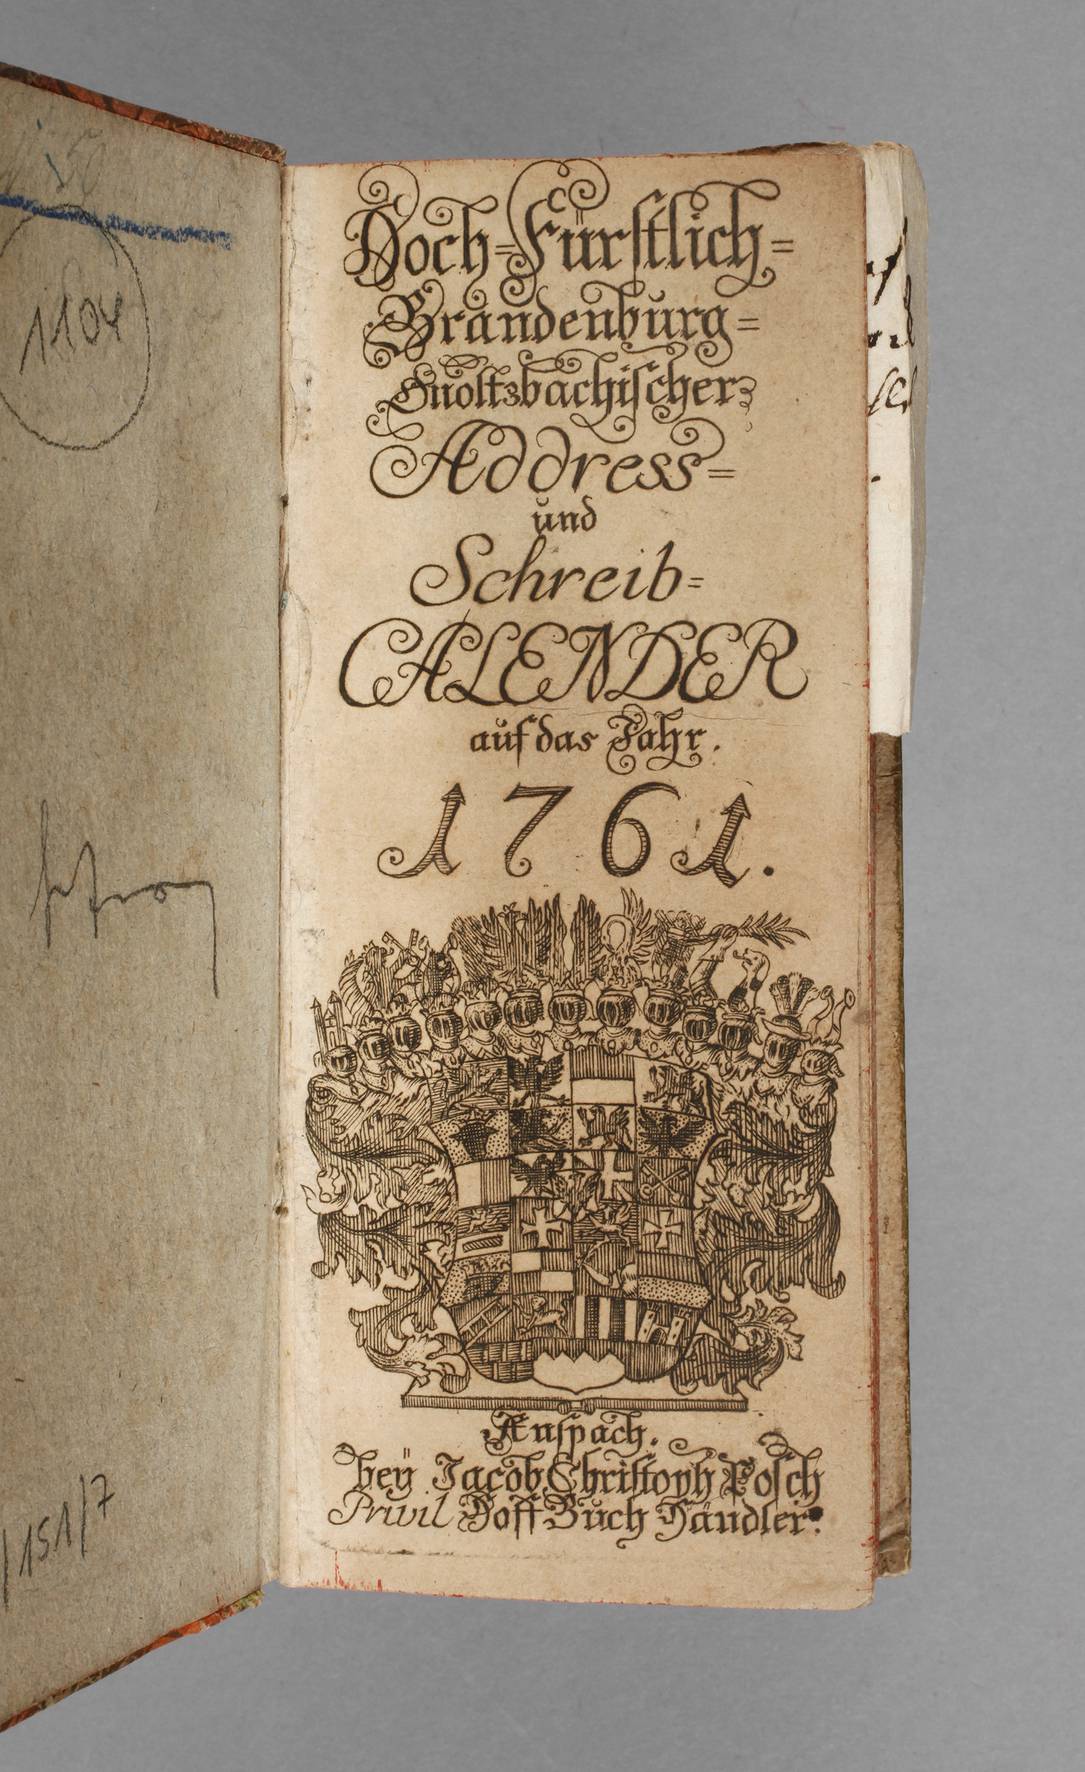 50
1104
/151/7
Hoch-Fürstlich-
Brandenburg-
Onoltzbachischer
Address-
und
Schreib-
CALENDER
auf das Jahr.
1761.
Anspach.
beÿ Jacob Christoph Posch
Privil Hoff Buch Händler.